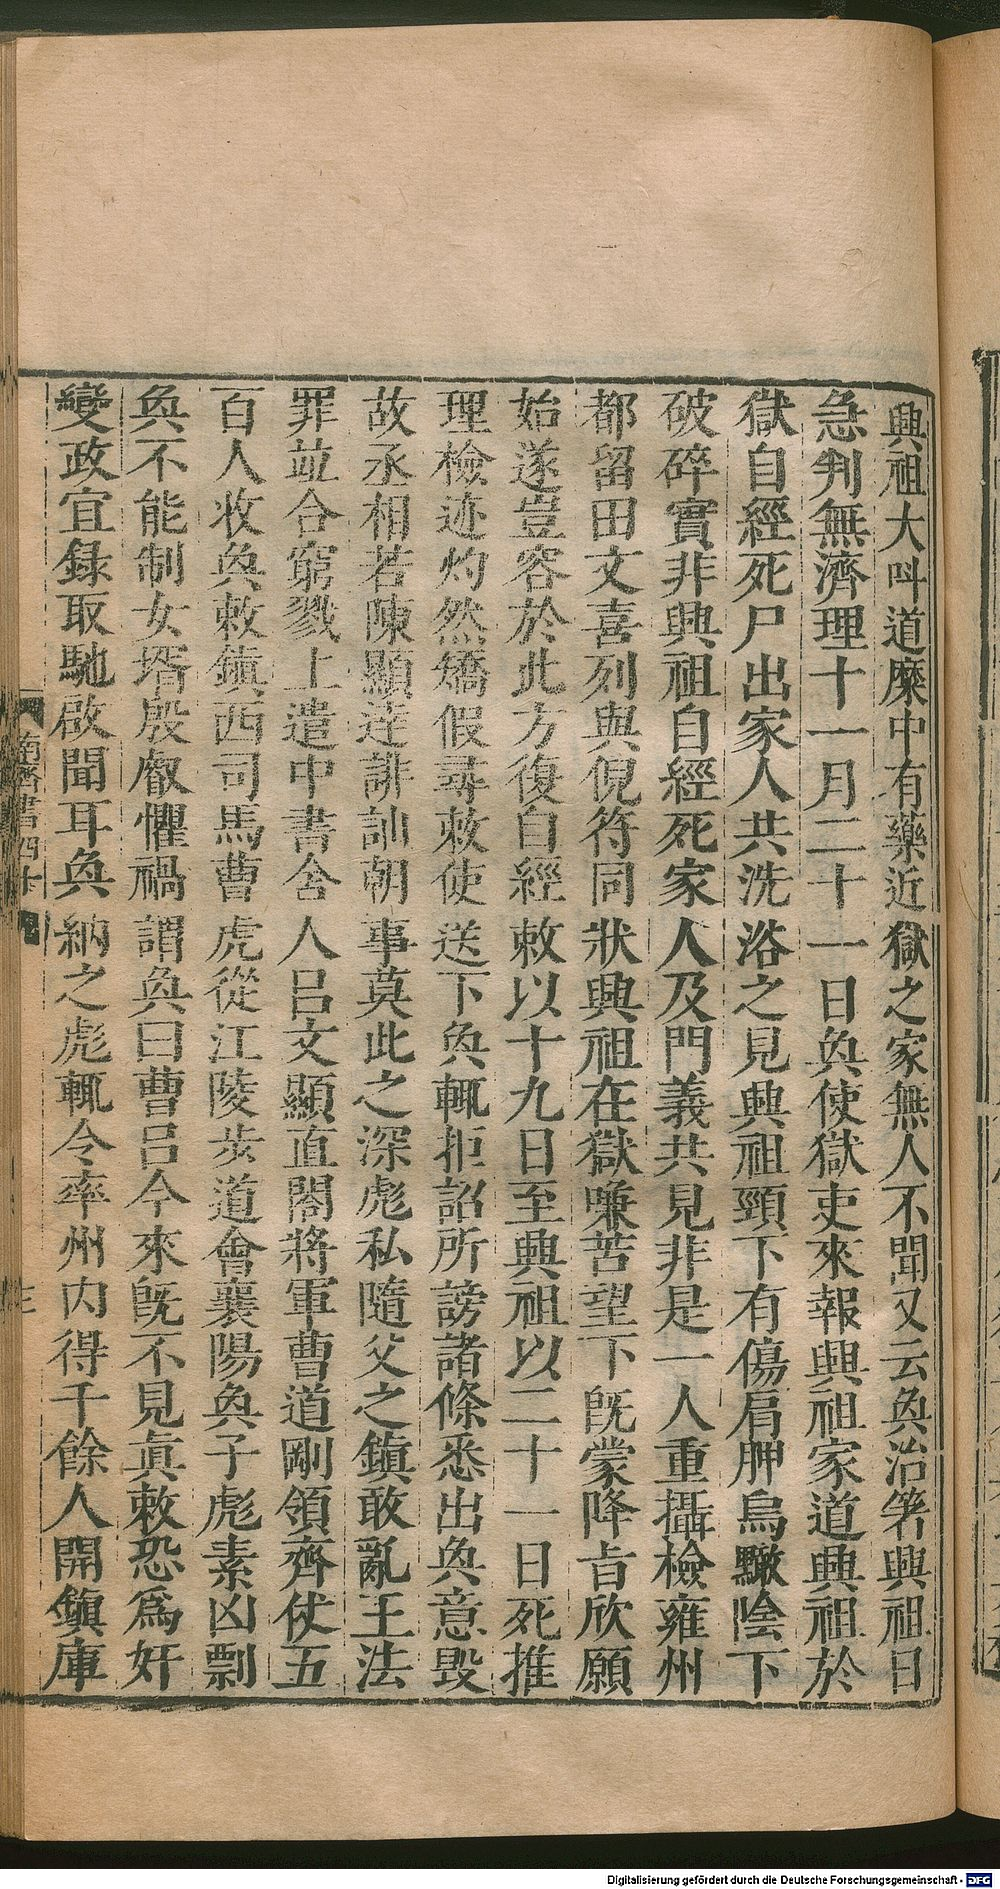 興祖大呌道糜中有藥近獄之家無人不聞又云奐治箸興祖日
急判無濟理十一月二十一日奐使獄吏來報興祖家道興祖於
獄自經死尸出家人共洗浴之見興祖頸下有傷肩胛烏䵳陰下
破碎實非興祖自經死家人及門義共見非是一人重攝檢雍州
都留田文喜列與倪符同狀興祖在獄嗛苦望下旣蒙降旨欣願
始遂豈容於此方復自經敕以十九日至興祖以二十一日死推
理檢迹灼然矯假尋敕使送下奐輒拒詔所謗諸條悉出奐意毀
故丞相若陳顯逹誹訕朝事莫此之深彪私隨父之鎮敢亂王法
罪竝合窮戮上遣中書舍人呂文顯直閤將軍曹道剛領齊仗五
百人收奐敕鎮西司馬曹虎從江陵步道會襄陽奐子彪素凶剽
奐不能制女壻殷叡懼禍謂奐曰曹呂今來旣不見眞敕恐爲奸
變政宜録取馳啟聞耳奐納之彪輒令率州内得千餘人開鎮庫
南齊書四十九
三
Digitalisierung gefördert durch die Deutsche Forschungsgemeinschaft - DFG